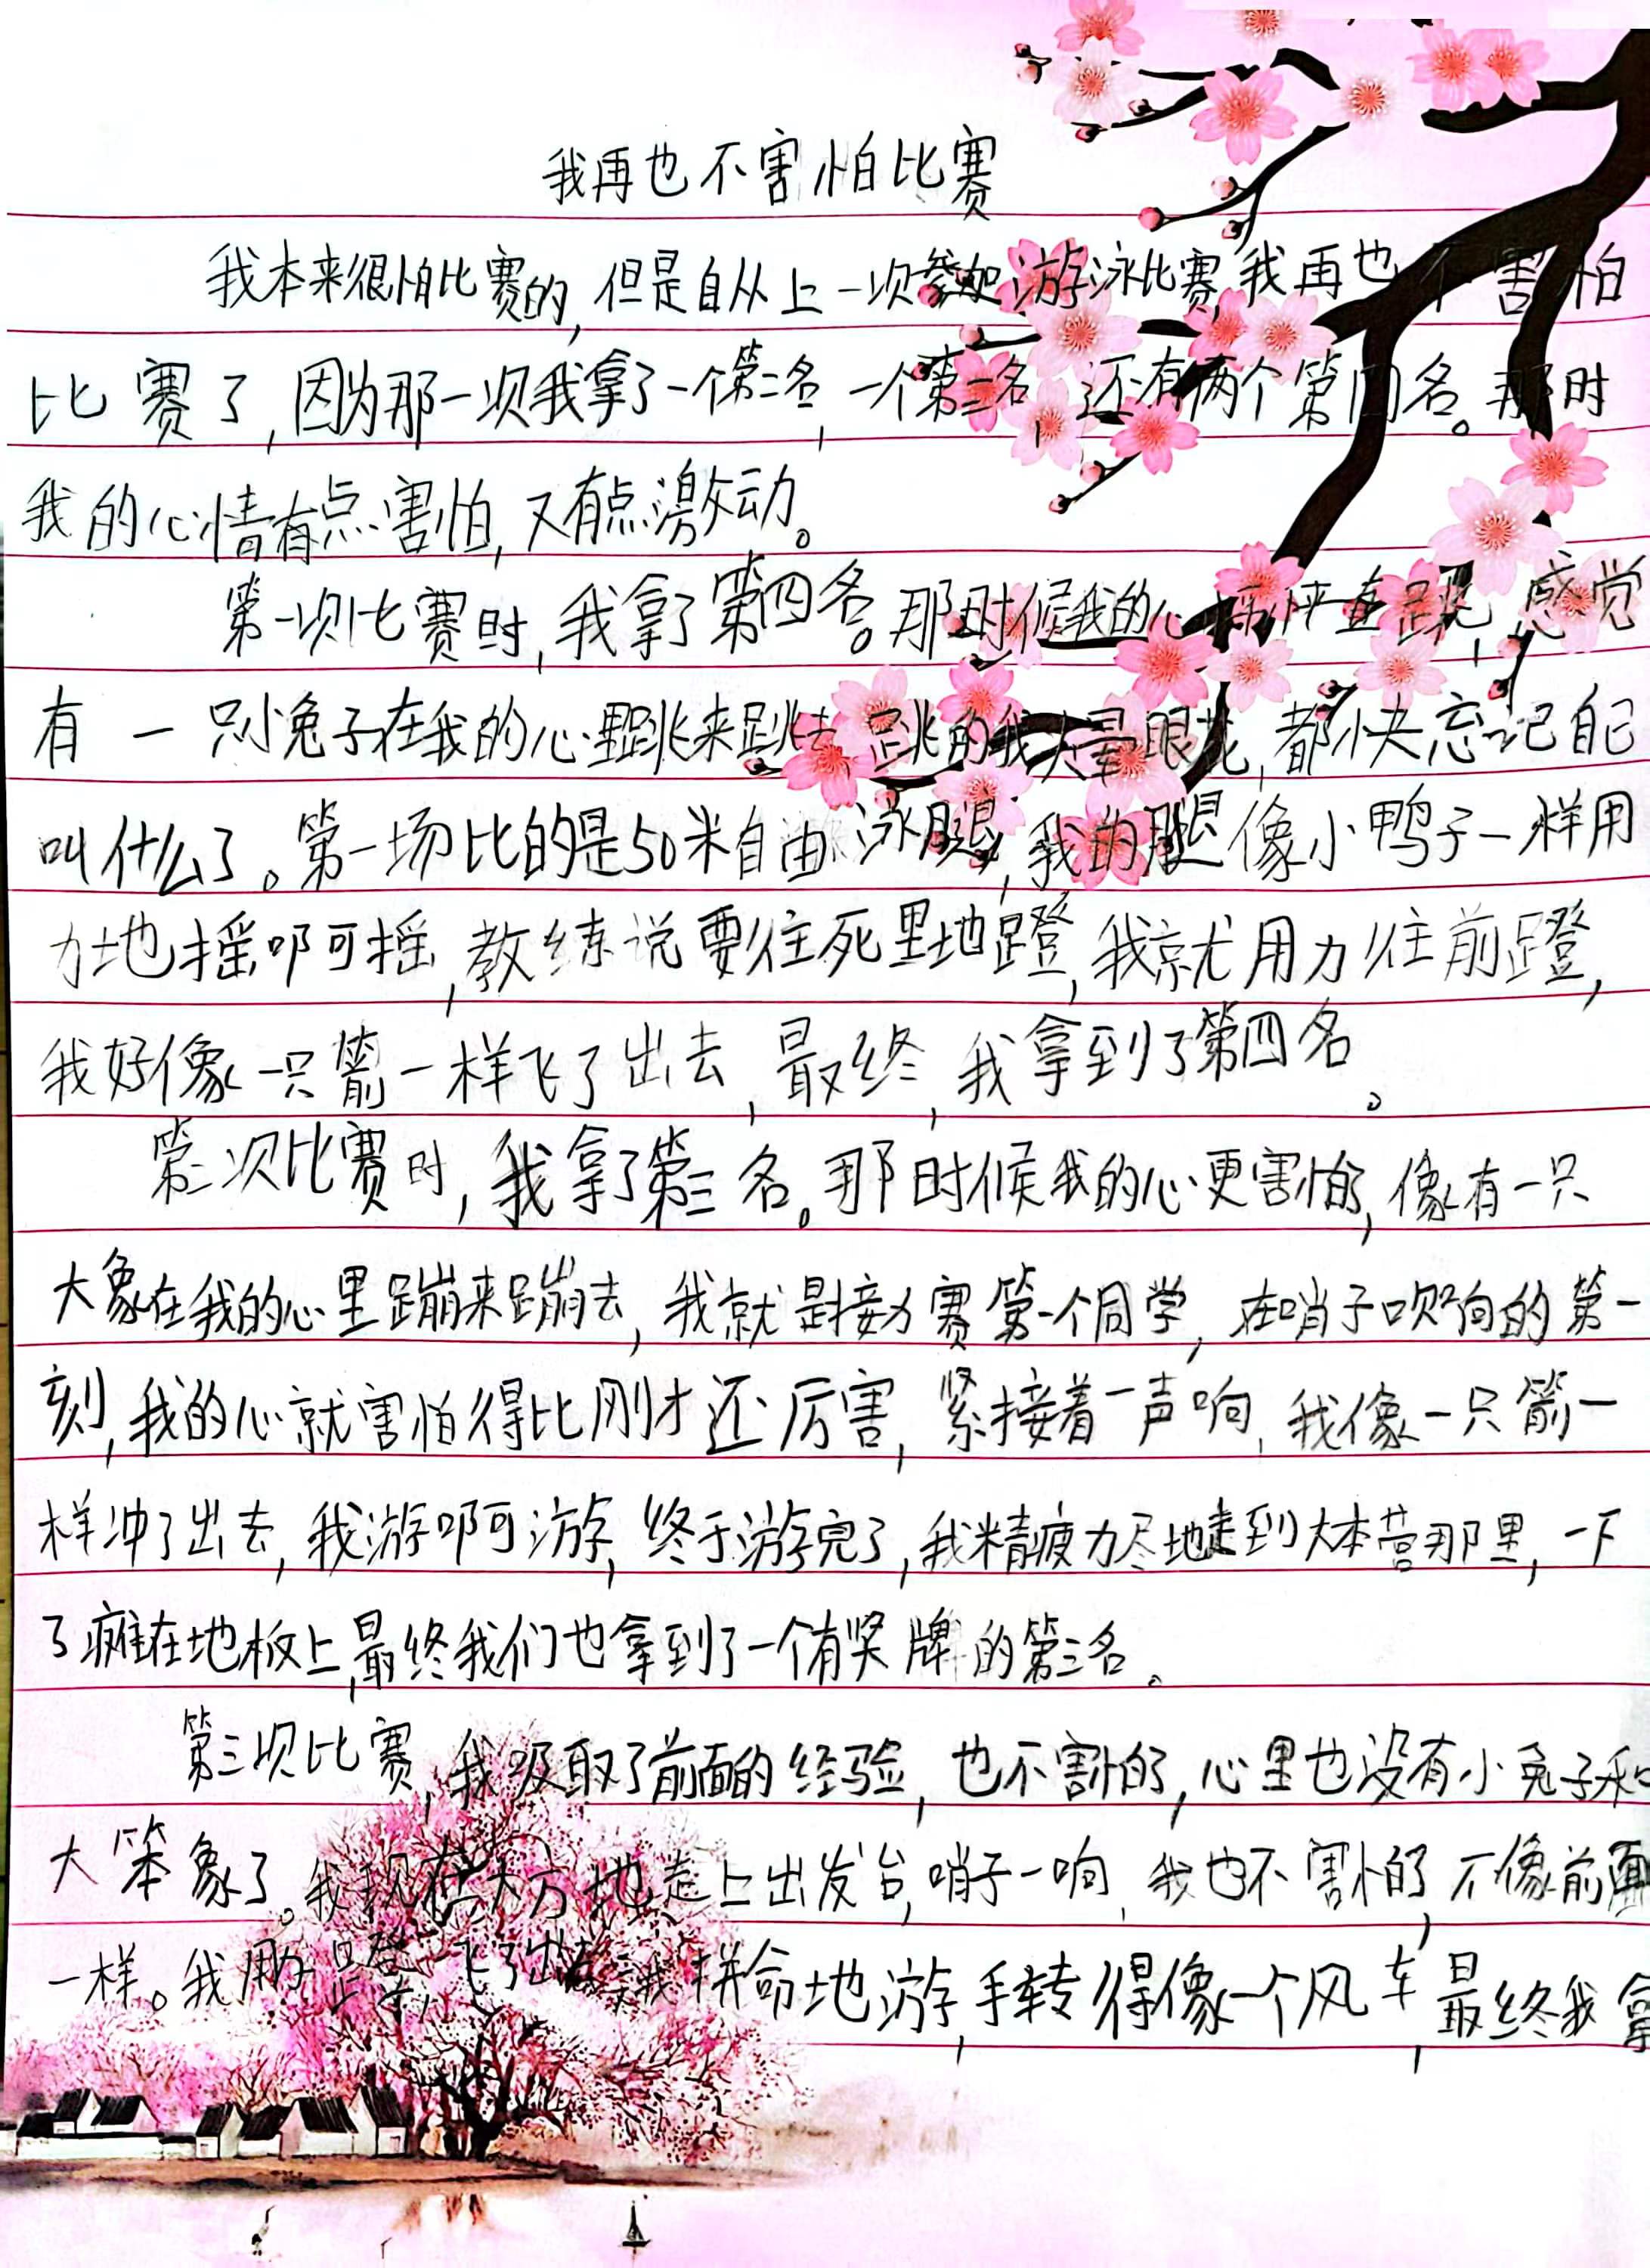 我再也不害怕比赛
我本来很怕比赛的,但是自从上一次参加游泳比赛,我再也不害怕
比赛了,因为那一次我拿了一个第二名,一个第三名,还有两个第四名。那时
我的心情有点害怕,又有点激动。
第一次比赛时,我拿了第四名。那时候我的心怦怦直跳,感觉
有一只小兔子在我的心里跳来跳去,跳的我头晕眼花,都快忘记自己
叫什么了。第一场比的是50米自由泳腿,我的腿像小鸭子一样用
力地摇啊摇,教练说要往死里地蹬,我就用力往前蹬,
我好像一只箭一样飞了出去,最终,我拿到了第四名。
第二次比赛时,我拿了第三名。那时候我的心更害怕了,像有一只
大象在我的心里蹦来蹦去,我就是接力赛第一个同学,在哨子吹响的第一
刻,我的心就害怕得比刚才还厉害,紧接着一声响,我像一只箭一
样冲了出去,我游啊游,终于游完了,我精疲力尽地走到大本营那里,一下
了瘫在地板上,最终我们也拿到了一个有奖牌的第三名。
第三次比赛,我吸取了前面的经验,也不害怕了,心里也没有小兔子和
大笨象了。我现在大方地走上出发台,哨子一响,我也不害怕了,不像前面
一样。我用力一蹬,飞了出去,我拼命地游,手转得像一个风车,最终我拿